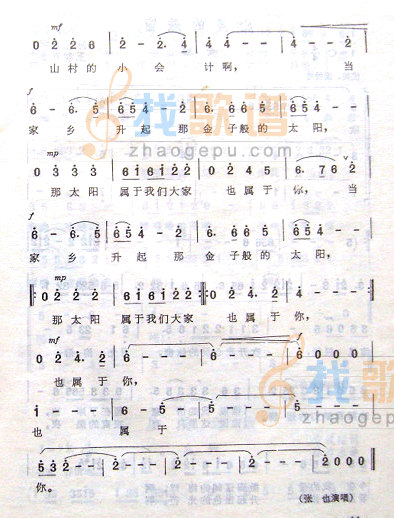 mf
0 2 2 6 | 2 - 2. 4 | 4 4 - - | 4 - - 2 |
山村的 小 会 计啊, 当
f
6 - 6. 5 | 6 5 4 - 2 | 6. 6 6 5 | 6 5 4 - - |
家 乡 升起 那 金子般的 太 阳,
找歌谱
zhaogepu.com
mp
0 3 3 3 | 6 1 6 1 2 2 | 0 2 4 2 | 6. 7 6 2 |
那太阳 属于我们大家 也属于 你, 当
f
6 - 6. 5 | 6 5 4 - 2 | 6. 6 6 5 | 6 5 4 - - |
家 乡 升起 那 金子般的 太 阳,
mp
0 2 2 2 | 6 1 6 1 2 2 | 0 2 4. 2 | 2 - - - |
那太阳 属于我们大家 也属于 你,
mf f
0 2 4. 2 | 2 - - - | 2 - - - | 6 - - - | 6 0 0 0 |
也属于 你,
找歌谱
zhaogepu.com
1 - - - | 6 - 5 - | 5 - - - | 5 - - - |
也 属 于
5 3 2 - - | 2 - - - | 2 - - - | 2 0 0 0 |
你。
(张 也演唱)